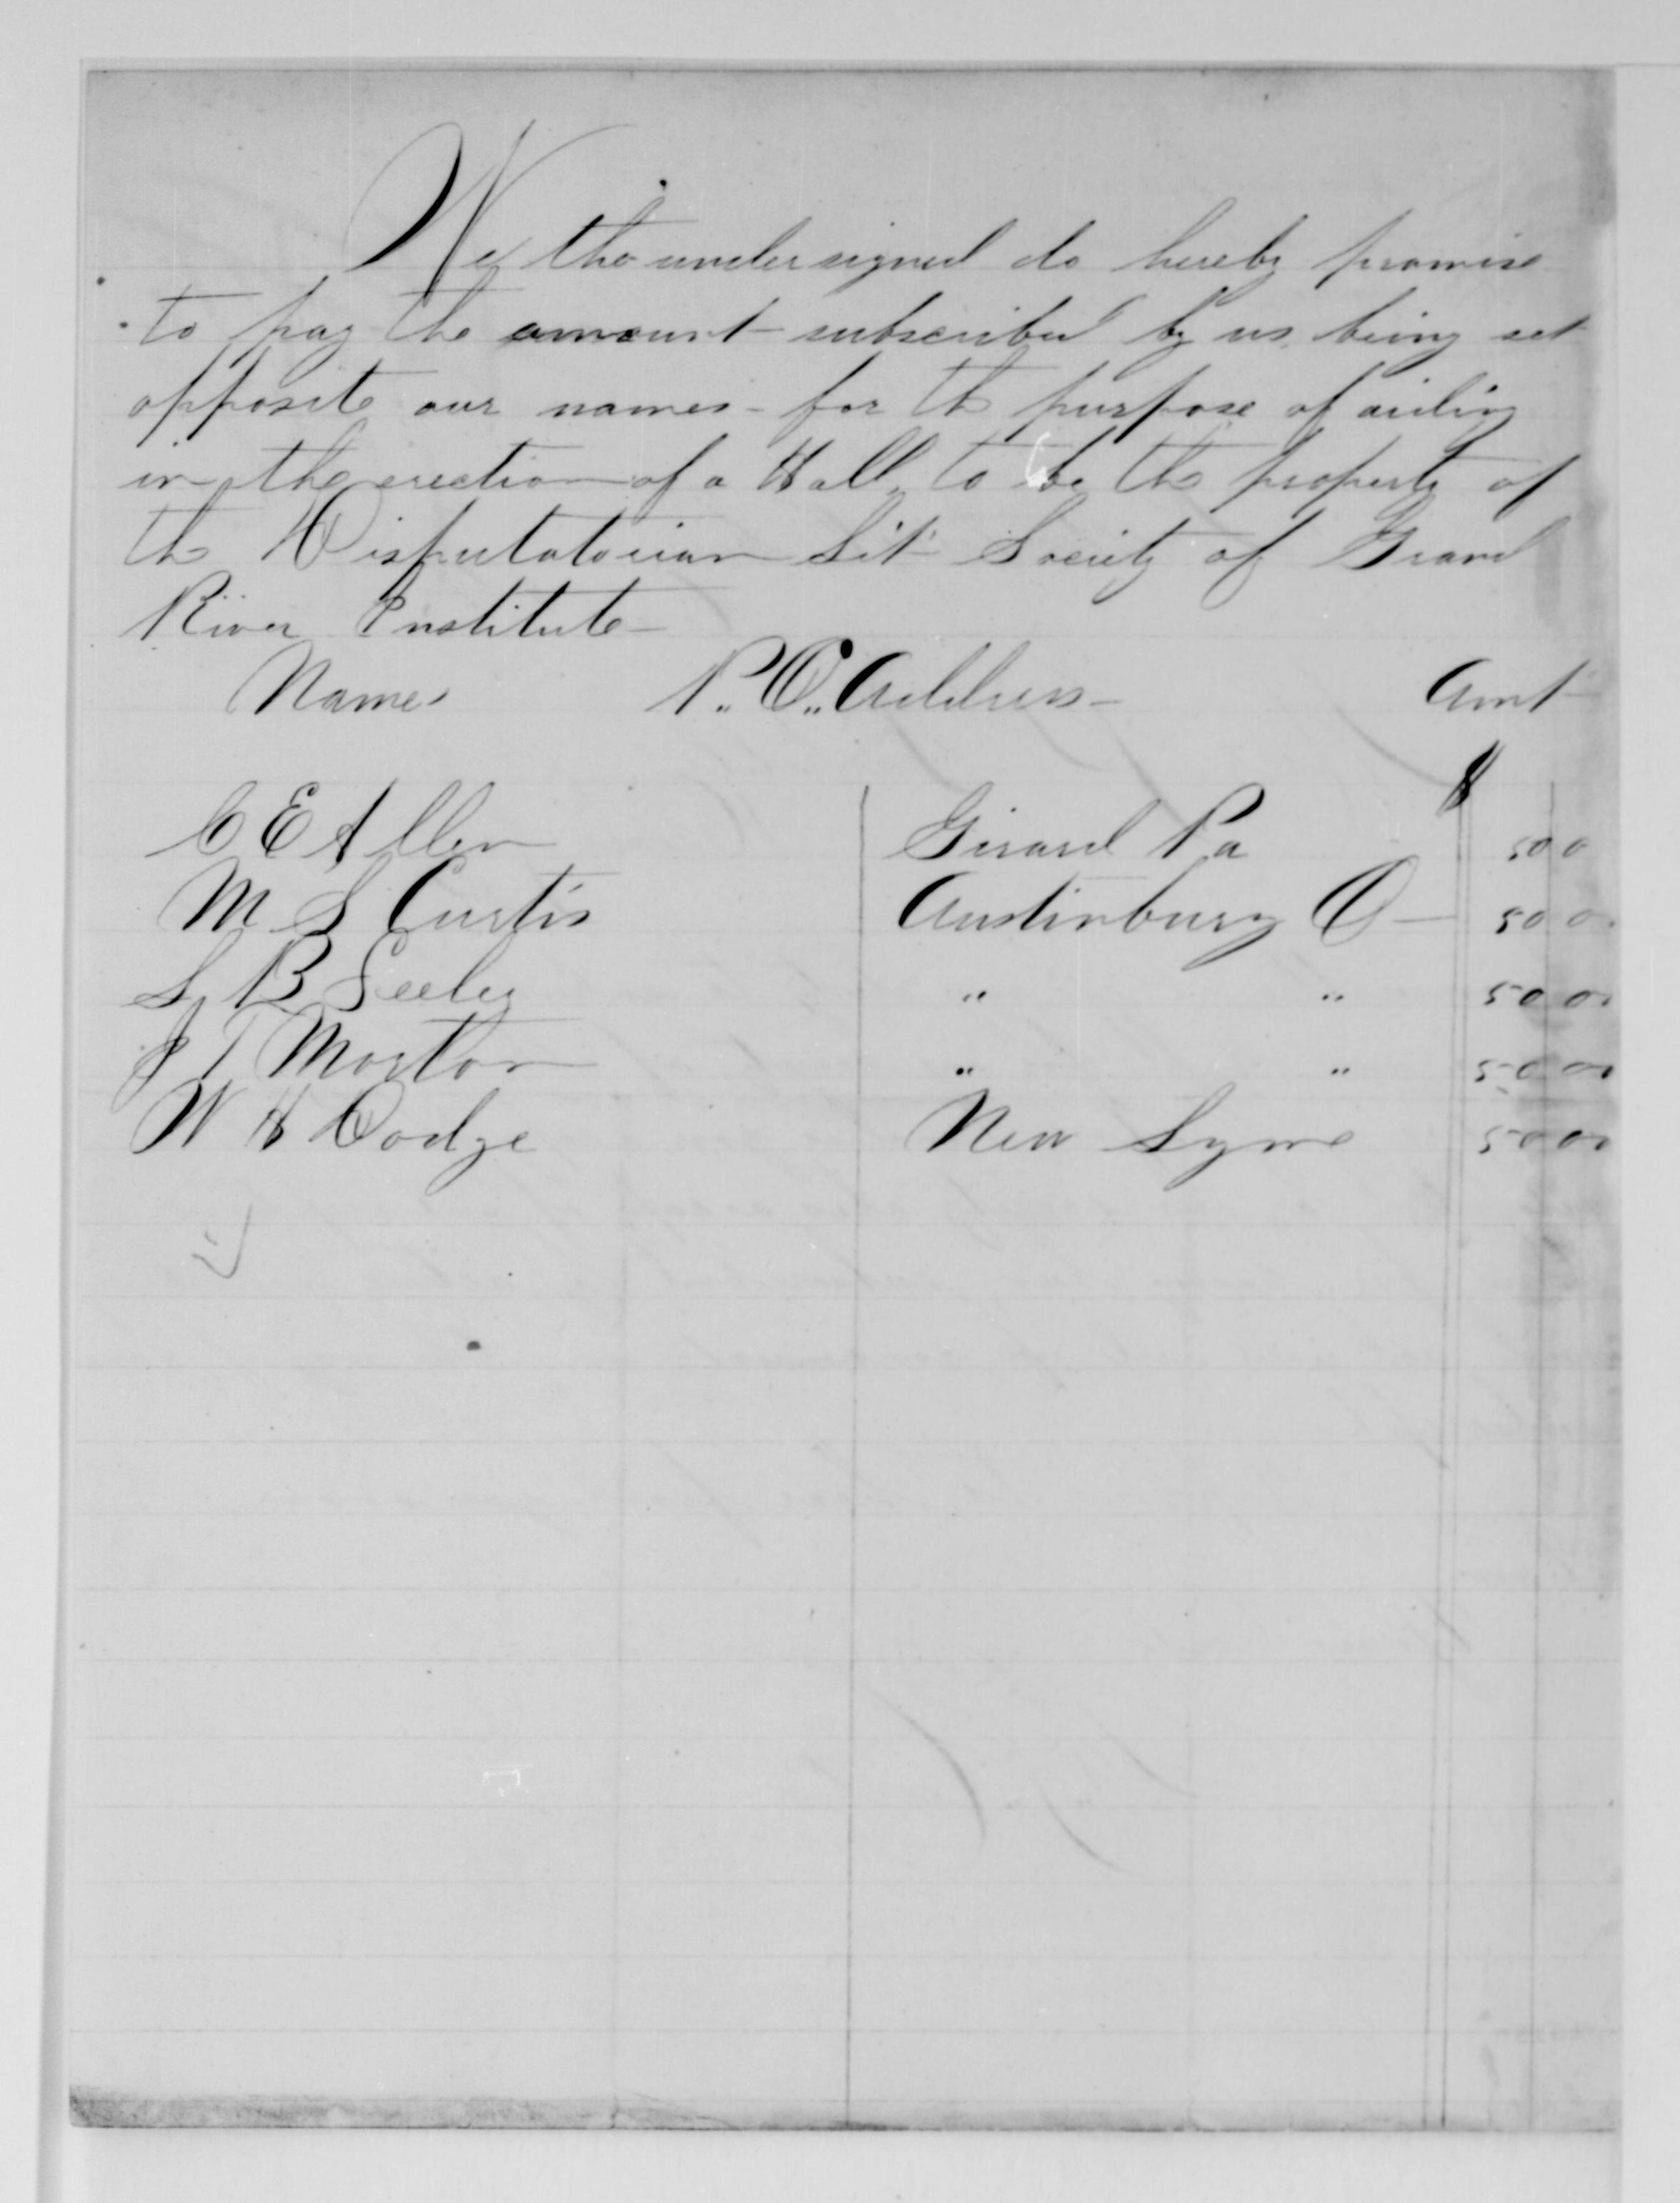 We the undersigned do hereby promise
to pay the amount subscribed by us, being set
opposite our names - for the purpose of aiding
in the erection of a Hall, to be the property of
the Disputatorian Lit. Society of Grand
River Institute -
Names P. O. Address - Amt
$
C E Allen Girard Pa 50 0
M S Curtis Austinburg O - 50 0
L B Seeley " " 50 00
J T Morton " " 50 00
W H Dodge New Lyme 50 00